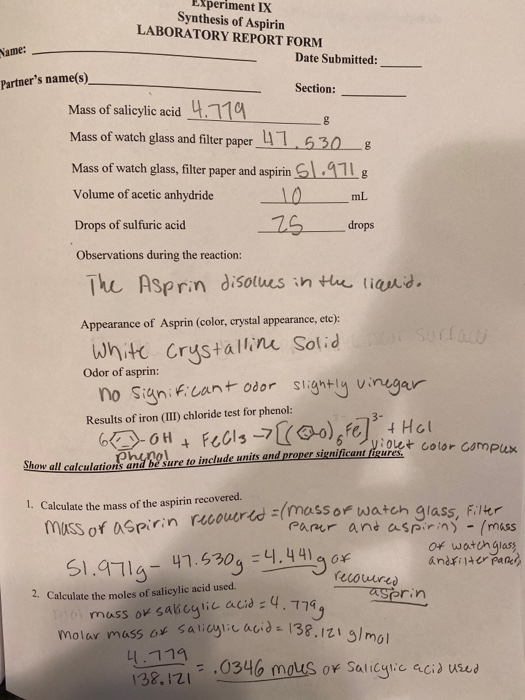 Experiment IX
Synthesis of Aspirin
LABORATORY REPORT FORM
Name:
Date Submitted:
Partner's name(s)
Section:
Mass of salicylic acid 4.779 g
Mass of watch glass and filter paper 47.530 g
Mass of watch glass, filter paper and aspirin 51.971 g
Volume of acetic anhydride 10 mL
Drops of sulfuric acid 25 drops
Observations during the reaction:
The Asprin disolves in the liquid.
Appearance of Asprin (color, crystal appearance, etc):
White crystalline solid
Odor of asprin:
no significant odor slightly vinegar
Results of iron (III) chloride test for phenol:
6 -OH + FeCl3 → [( -O)6 Fe]3- + HCl
phenol violet color complex
Show all calculations and be sure to include units and proper significant figures.
1. Calculate the mass of the aspirin recovered.
mass of aspirin recovered = (mass of watch glass, filter
paper and aspirin) - (mass
of watch glass
and filter paper)
51.971g - 47.530g = 4.441g of
recovered
asprin
2. Calculate the moles of salicylic acid used.
mass of salicylic acid = 4.779g
molar mass of salicylic acid = 138.121 g/mol
4.779
138.121 = .0346 moles of salicylic acid used